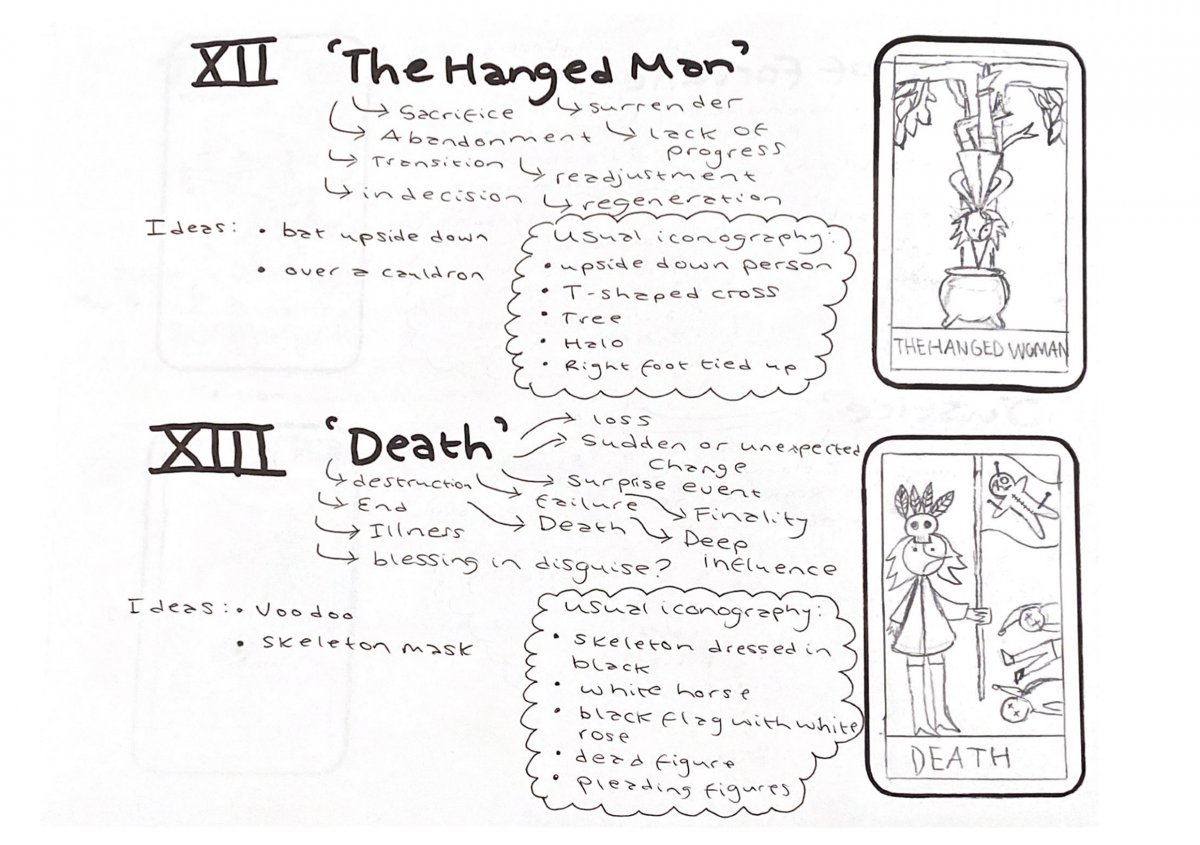 XII 'The Hanged Man'
↳ Sacrifice ↳ surrender
↳ Abandonment ↳ lack of
progress
↳ Transition ↳ readjustment
↳ indecision ↳ regeneration
Ideas: • bat upside down
• over a cauldron
usual iconography:
• upside down person
• T-shaped cross
• Tree
• Halo
• Right foot tied up
THE HANGED WOMAN
XIII 'Death'
→ loss
→ Sudden or unexpected
change
↳ destruction ↳ surprise event
↳ End ↳ Failure ↳ Finality
↳ Illness ↳ Death ↳ Deep
influence
↳ blessing in disguise?
Ideas: • Voodoo
• skeleton mask
usual iconography:
• skeleton dressed in
black
• white horse
• black flag with white
rose
• dead figure
• pleading figures
DEATH